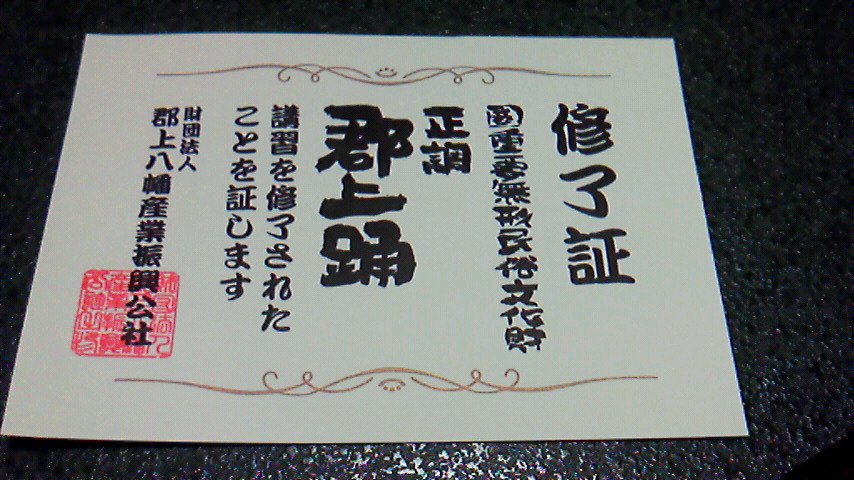 修了証
国重要無形民俗文化財
正調
郡上踊
講習を修了された
ことを証します
財団法人
郡上八幡産業振興公社